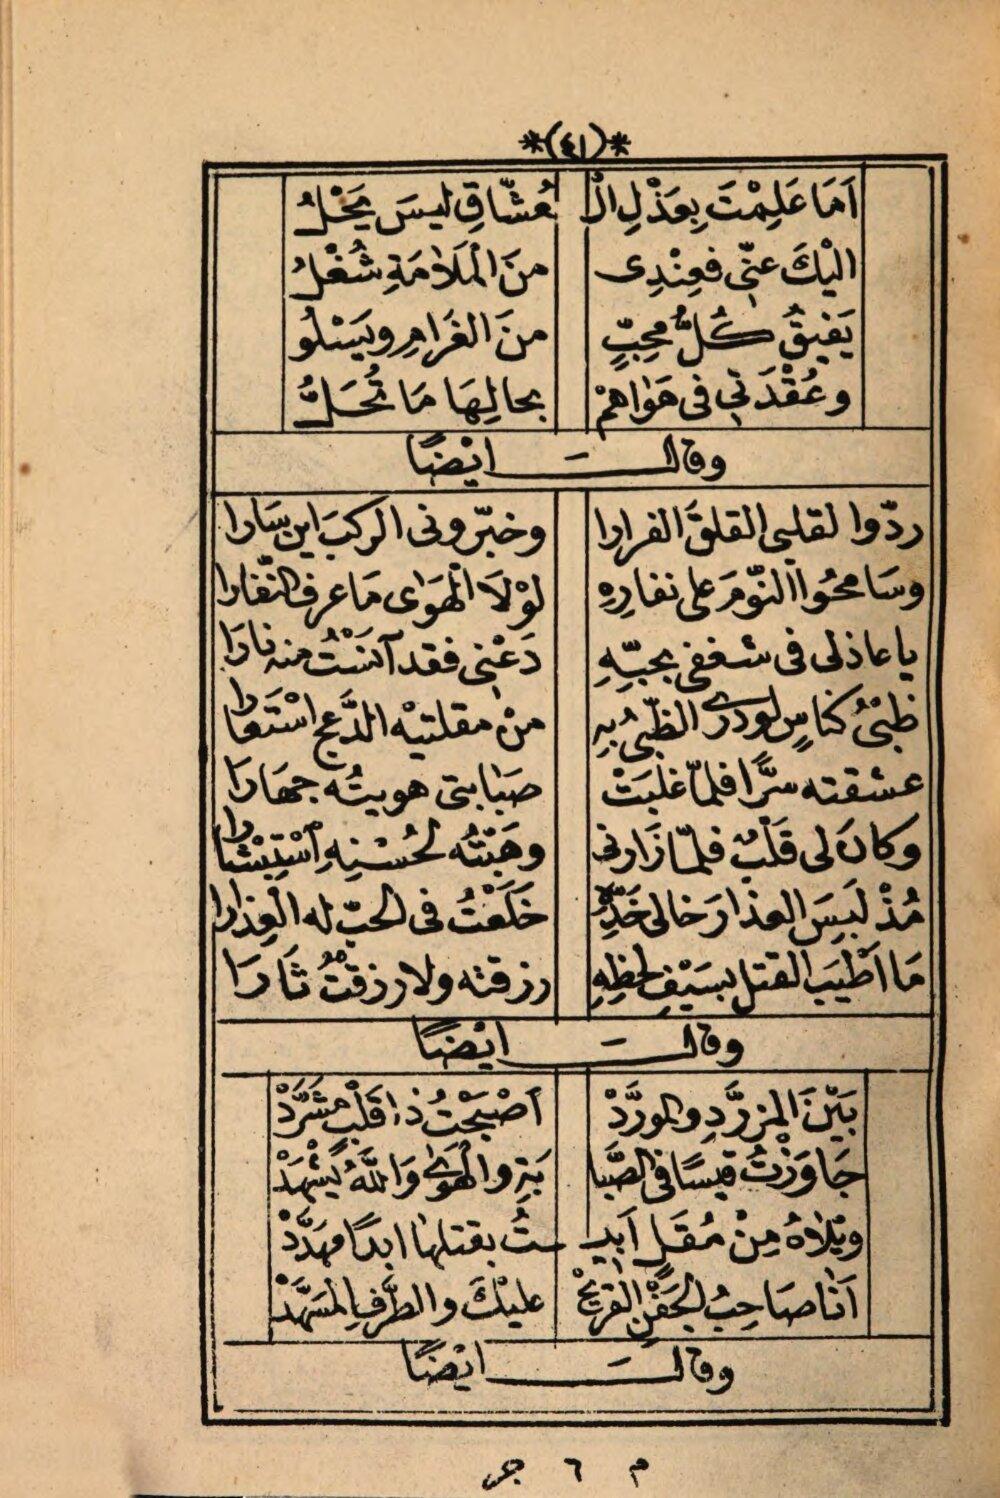 *(٤١)*
اَمَا عَلِمْتَ بِعَذْلِ الْـ عُشّاقِ ليسَ يَحْلُ
اليْكَ عنّى فعِنْدِى منَ الْمَلَامَةِ شُغْلُ
يَفيقُ كُلُّ محِبٍّ منَ الغَرامِ ويَسْلُو
وعُقْدَتِى فى هَوَاهمْ بحالِهَا مَا تُحَلُّ
وقالــــ ايْضًا
ردّوا لقلبى القلقَ القرارا وخبّرونى الركبَ اين سَارا
وسَامحُوا النّومَ على نفارِهِ لوْلَا الْهَوَى مَا عرف النّفارا
ياعاذلى فى شغفى بحبِّهِ دَعْنِى فقد آنَسْتُ منه نارَا
ظبْىُ كناسٍ لودرى الظّبىُ بِهِ منْ مقلتيْه الدَّعجَ اسْتَعَارا
عشقته سرًّا فلمّا غلبَتْ صَبَابتى هويتُه جهَارَا
وكانَ لى قَلْبٌ فلمّا زَارنى وهَبْتُه لحُسْنِهِ اسْتِبْشَارا
مُذْ لَبِسَ العذارَ خالى خَدِّهِ خَلَعْتُ فى الحبّ له الْعِذارا
مَا اَطْيَبَ القتل بسَيْفِ لحظِهِ رزقته ولارزقْتُ ثَارَا
وقالــــ ايْضًا
بَيْنَ المزرَّدِ والمورَّدْ اَصْبَحْتُ ذا قَلْبٍ مشَرَّدْ
جَاوَزْتُ قيسًا فى الصَّبا بَةِ والْهَوَى وَاللّٰهُ يَشْهَدْ
ويْلَاهُ مِنْ مُقَلٍ اَبيـ ـتُ بقتلها ابدًا مهَدَّدْ
اَنَا صَاحِبُ الجَفْنِ القريْحِ عليْكَ والطَّرْفِ المسَهَّدْ
وقالــــ ايْضًا
م ٦ جر